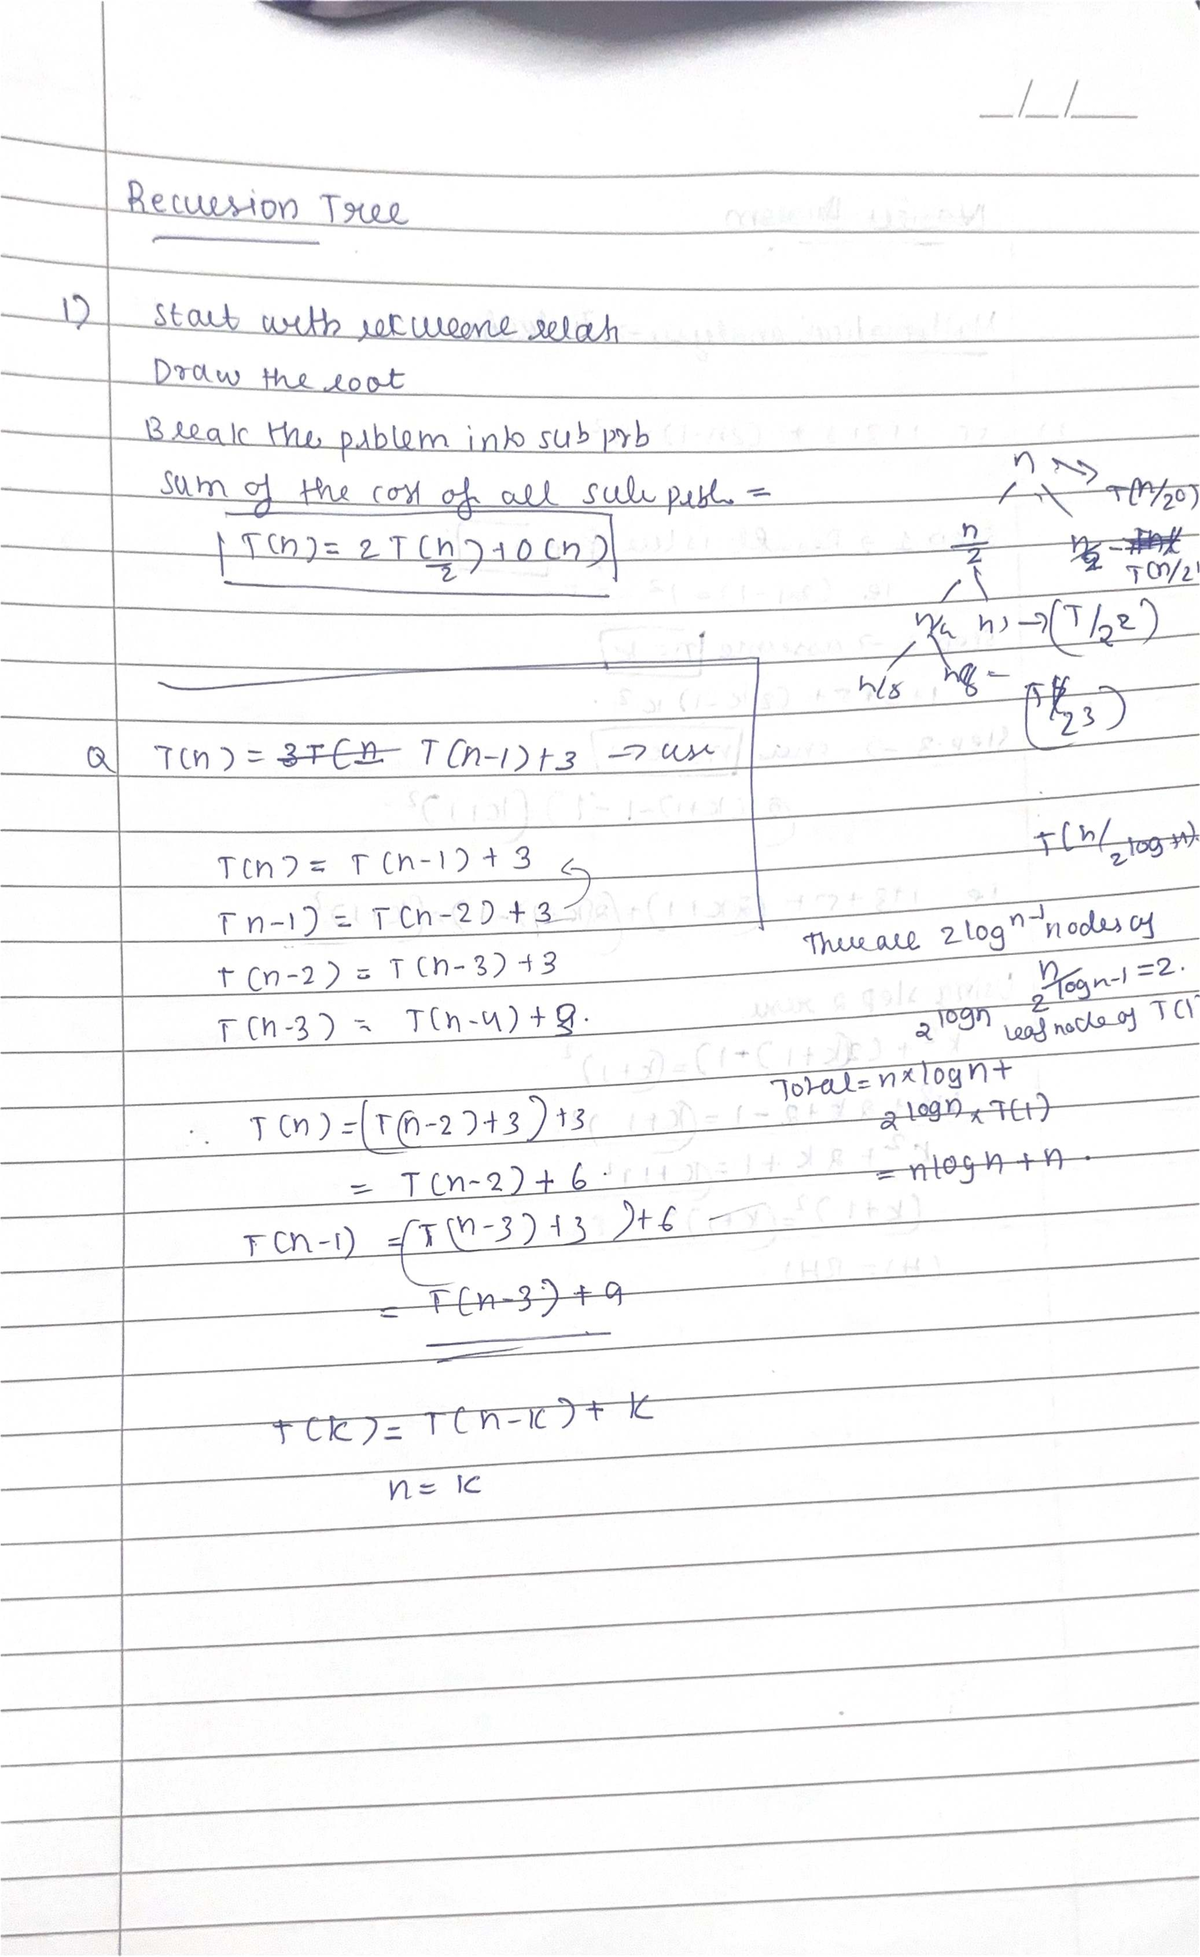 _/_/_
Recuesion Tree
1) Start with relation
Draw the root
Break the problem into sub prb
sum of the cost of all sub =
T(n) = 2T(n/2) + O(n)
n → T(n/20)
n/2 n/2 - T(n/2
n/4 n) → (T/2 2)
n/8 n8 - (T/23)
T(n/2 log n).
There are 2 log n-1 nodes of
n/2 log n-1 = 2.
2 log n leaf node of T(1
Total = n x log n +
2 log n x T(1)
= n log n + n .
Q T(n) = 3T(n T(n-1) + 3 → use
T(n) = T(n-1) + 3
T n-1) = T(n-2) + 3
T(n-2) = T(n-3) + 3
T(n-3) = T(n-4) + 3.
∴ T(n) = (T(n-2) + 3) + 3
= T(n-2) + 6
T(n-1) = (T(n-3) + 3 ) + 6
= T(n-3) + 9
T(k) = T(n-k) + k
n = k